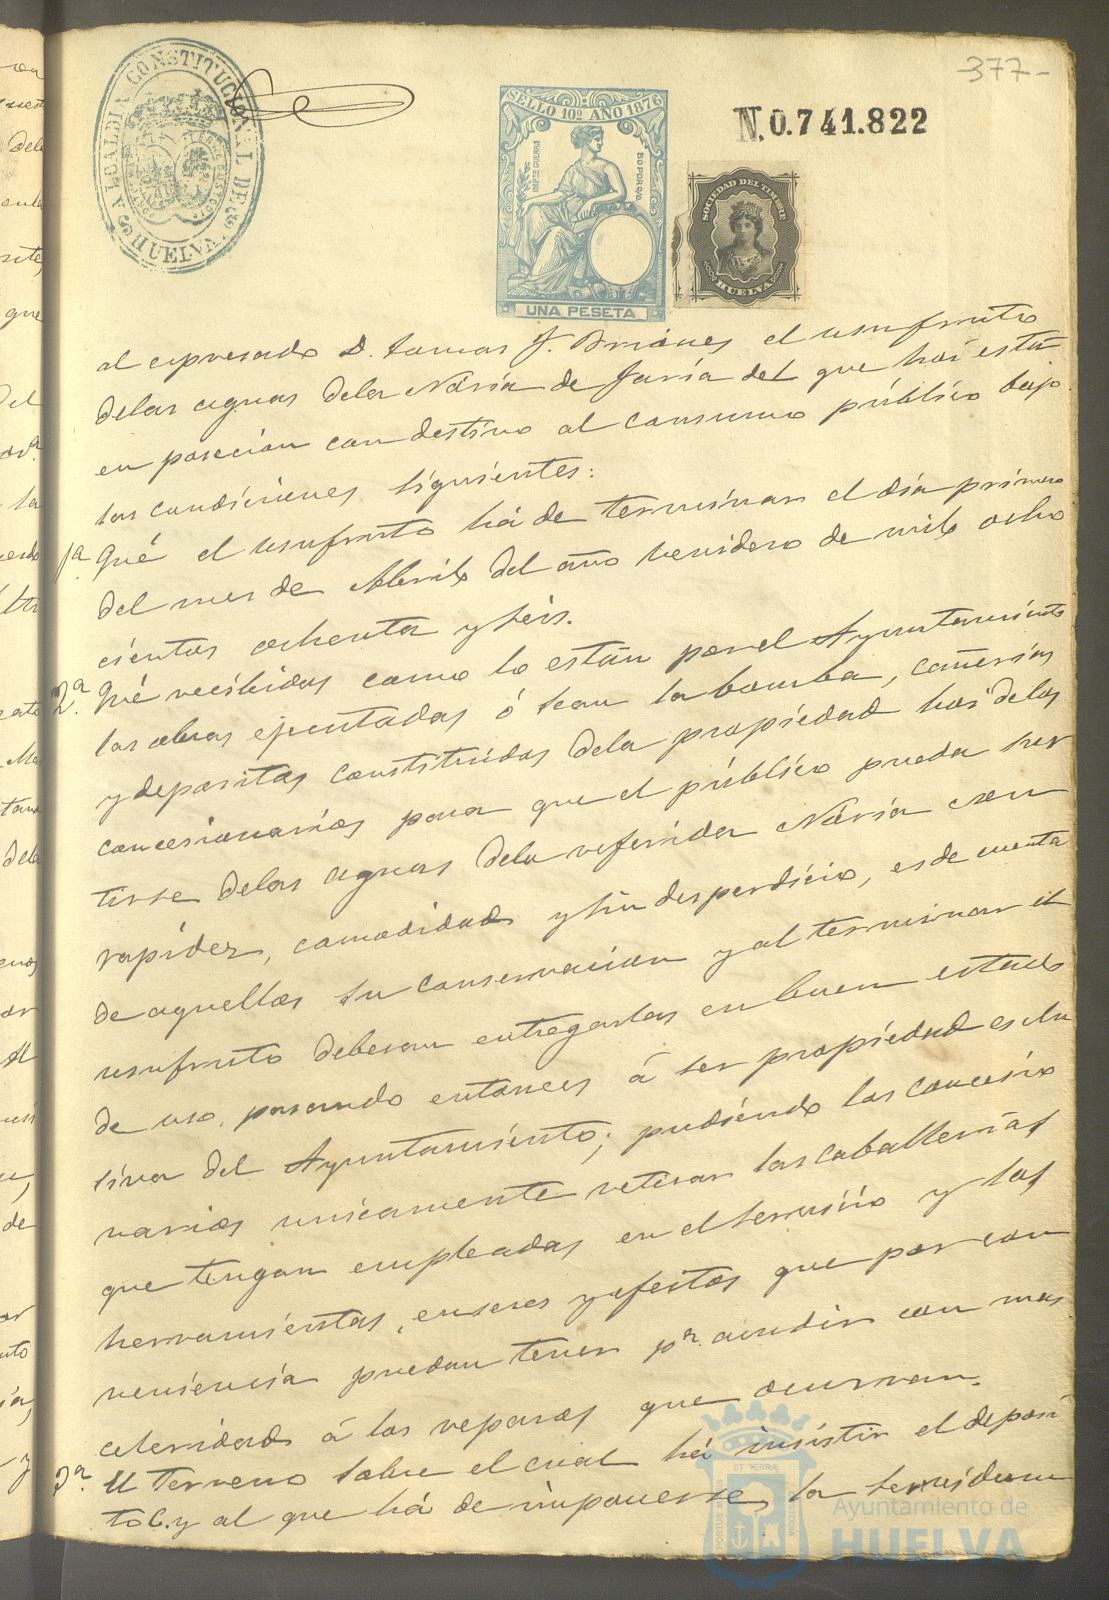 377-
ALCALDIA CONSTITUCIONAL DE
HUELVA
SELLO 10º AÑO 1876
IMPTO GUERRA
UNA PESETA
N.0.741.822
SOCIEDAD DEL TIMBRE
HUELVA
al espresado D. Tomas J. Briones el usufructo
delas aguas dela Noria de Jaria del que hoi está
en posecion con destino al consumo público bajo
las condiciones siguientes:
1ª. Qué el usufruto há de terminar el dia primero
del mes de Abril del año venidero de mil ocho
cientos ochenta y seis.
2ª. Qué recibidas como lo están por el Ayuntamiento
las obras ejecutadas ó sean la bomba, cañerias
y depositos constituidos dela propiedad hoi delos
concesionarios para que el público pueda sur
tirse delas aguas dela referida Noria con
rapidez, comodidad y sin desperdicio, es de cuenta
de aquellos su conservacion y al terminar el
usufruto deberan entregarlas en buen estado
de uso, pasando entonces á ser propiedad esclu
siva del Ayuntamiento; pudiendo los concesio
narios unicamente retirar las caballerias
que tengan empleadas en el servicio y las
herramientas, enseres y efectos que por con
veniencia puedan tener pª. acudir con mas
celeridad á los reparos que ocurran.
3ª. El terreno sobre el cual há insistir el deposi
to y al que há de imponerse la servidum
ET TERRA
PORTUS
CUSTODIA
Ayuntamiento de
HUELVA